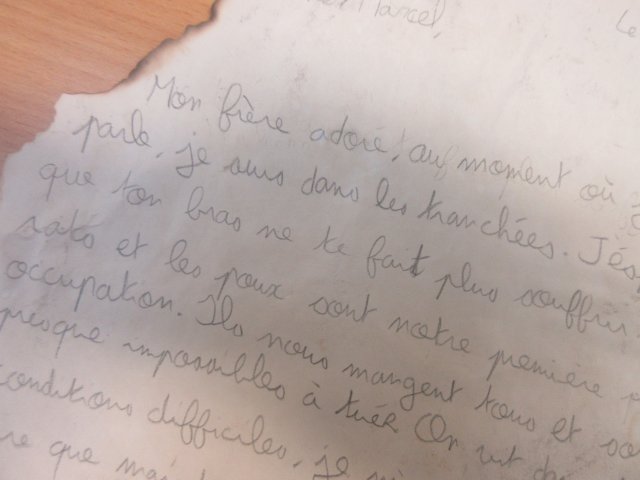 Marcel, Le
Mon frère adoré, au moment où
parle, je suis dans les tranchées. J'és
que ton bras ne te fait plus souffrir.
rats et les poux sont notre première p
occupation. Ils nous mangent tous et so
presque impossibles à tuér On vit da
conditions difficiles, je
re que